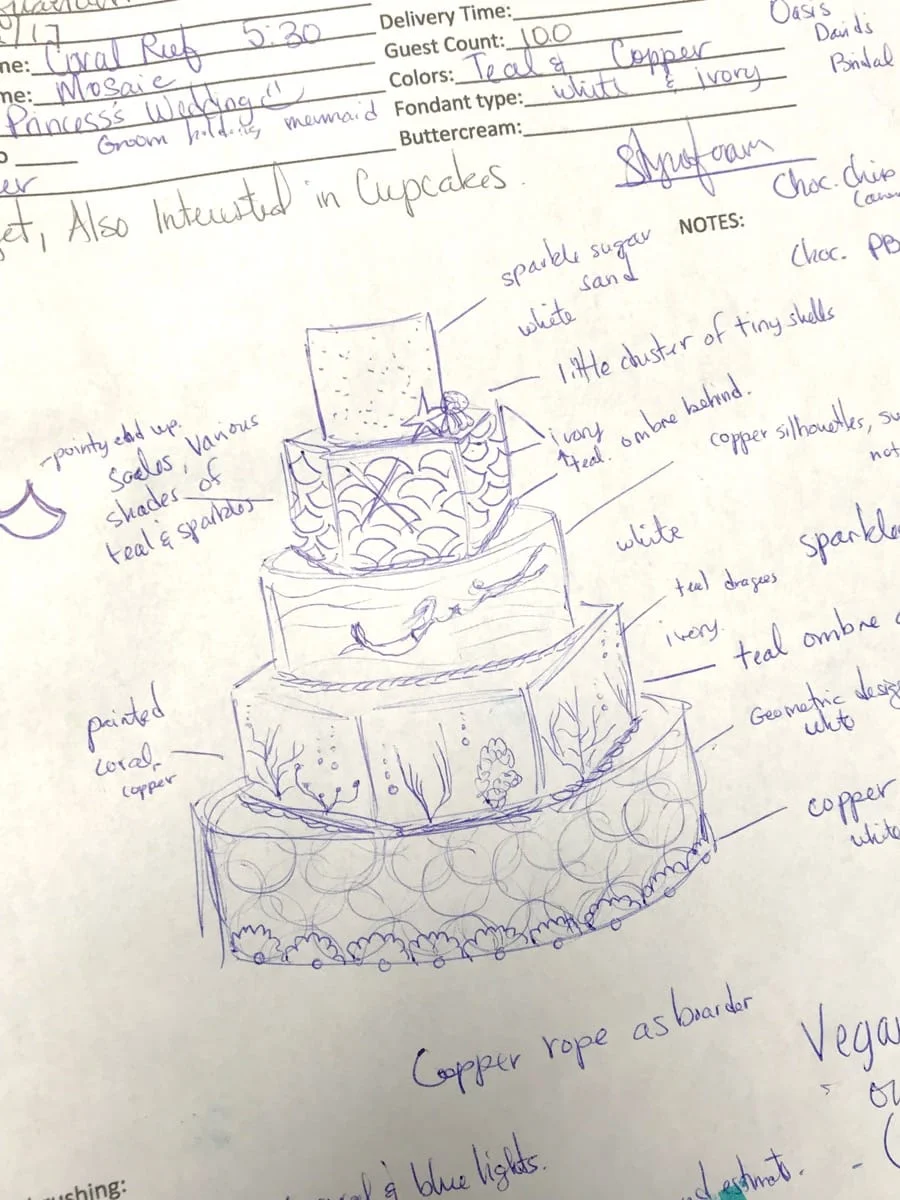 /17
Delivery Time:
Oasis
ne: Coral Reef 5:30
Guest Count: 100
Davids
me: Mosaic
Colors: Teal & Copper
Bridal
Princess's Wedding
Fondant type: white & ivory
Groom holding mermaid
Buttercream:
er
Styrofoam
et, Also Interested in Cupcakes.
Choc. Chip
NOTES:
Choc. PB
sparkle sugar
sand
white
little cluster of tiny shells
-pointy end up.
Scales, Various
shades of
teal & sparkles
ivory
teal. ombre behind.
copper silhouettes, su
not
white
sparkle
teal dragees
ivory.
teal ombre
painted
coral,
copper
Geometric desig
white
copper
white
Copper rope as boarder
Vegan
& blue lights.
estimate. -
ushing: